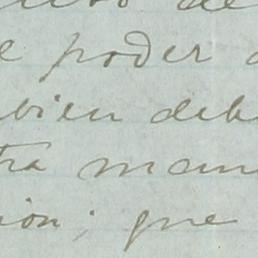 de
e poder
bien deb
tra man
ión; que